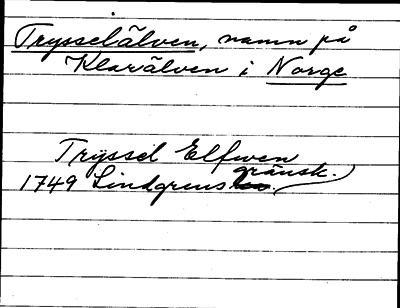 Trysselälven, namn på
Klarälven i Norge
Tryssel Elfwen
1749 Lindgrens gränsk.